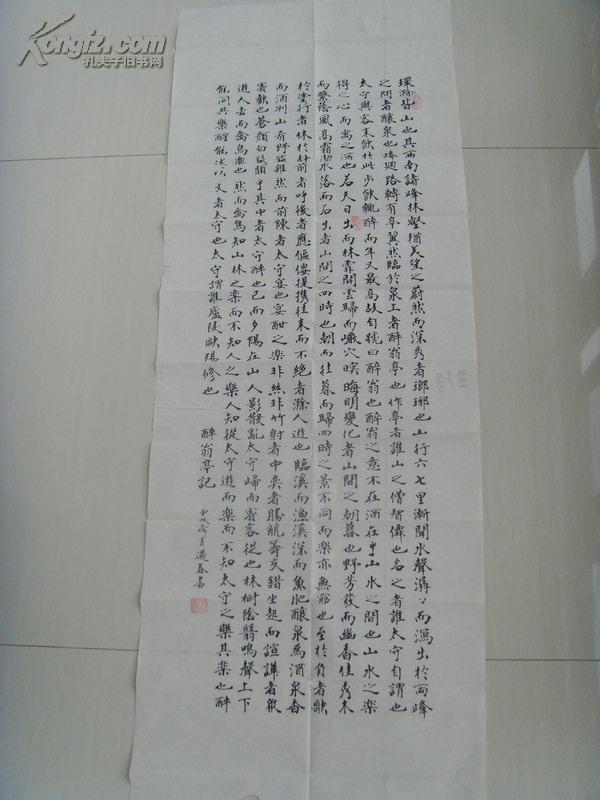 Kongfz.com
孔夫子旧书网
環滁皆山也其西南諸峰林壑猶美望之蔚然而深秀者瑯琊也山行六七里漸聞水聲潺〻而瀉出於兩峰
之間者釀泉也峰迴路轉有亭翼然臨於泉上者醉翁亭也作亭者誰山之僧智僊也名之者誰太守自謂也
太守與客来飲於此少飲輒醉而年又最高故自號曰醉翁也醉翁之意不在酒在乎山水之間也山水之楽
得之心而寓之酒也若夫日出而林霏開雲歸而巖穴暝晦明變化者山間之朝暮也野芳發而幽香佳秀木
而繁蔭風高霜潔水落而石出者山間之四時也朝而往暮而歸四時之景不同而樂亦無窮也至於負者歌
於塗行者休於樹前者呼後者應傴僂提携往来而不絶者滁人遊也臨溪而漁溪深而魚肥釀泉為酒泉香
而酒洌山肴野蔌雜然而前陳者太守宴也宴酣之樂非絲非竹射者中奕者勝觥籌交錯坐起而諠譁者衆
賓歡也蒼顏白髮頹乎其中者太守醉也已而夕陽在山人影散亂太守歸而賓客從也林樹陰翳鳴聲上下
遊人去而禽鳥楽也然而禽鳥知山林之楽而不知人之樂人知從太守遊而楽而不知太守之樂其楽也醉
能同其樂醒能述以文者太守也太守謂誰廬陵歐陽修也
醉翁亭記
春書